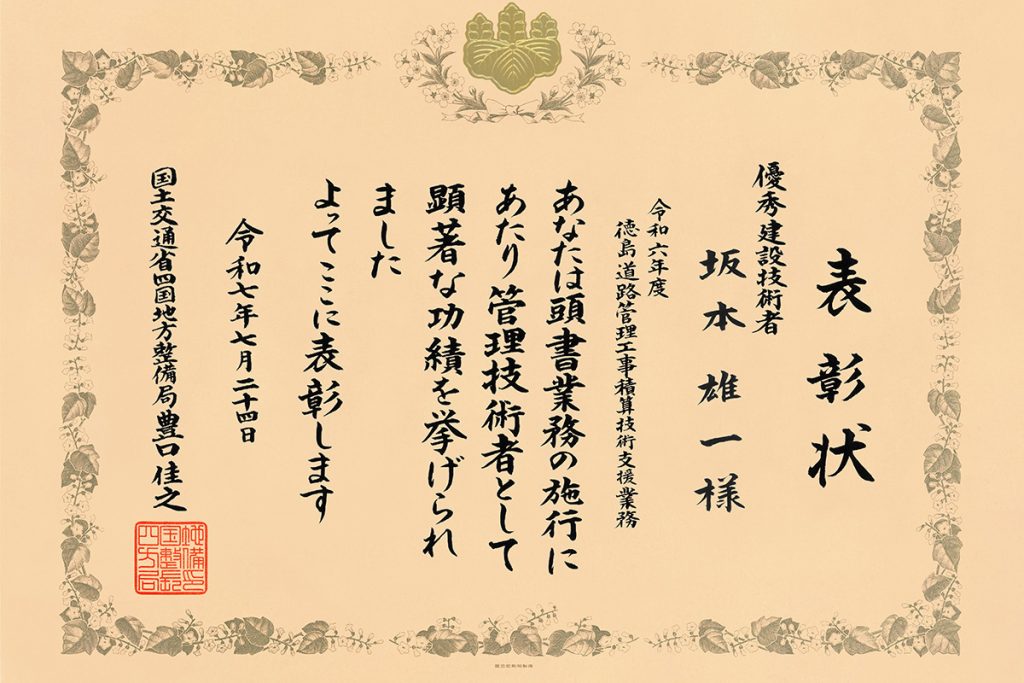 表彰状
優秀建設技術者
坂本雄一様
令和六年度
徳島道路管理工事積算技術支援業務
あなたは頭書業務の施行に
あたり管理技術者として
顕著な功績を挙げられ
ました
よってここに表彰します
令和七年七月二十四日
国土交通省四国地方整備局豊口佳之